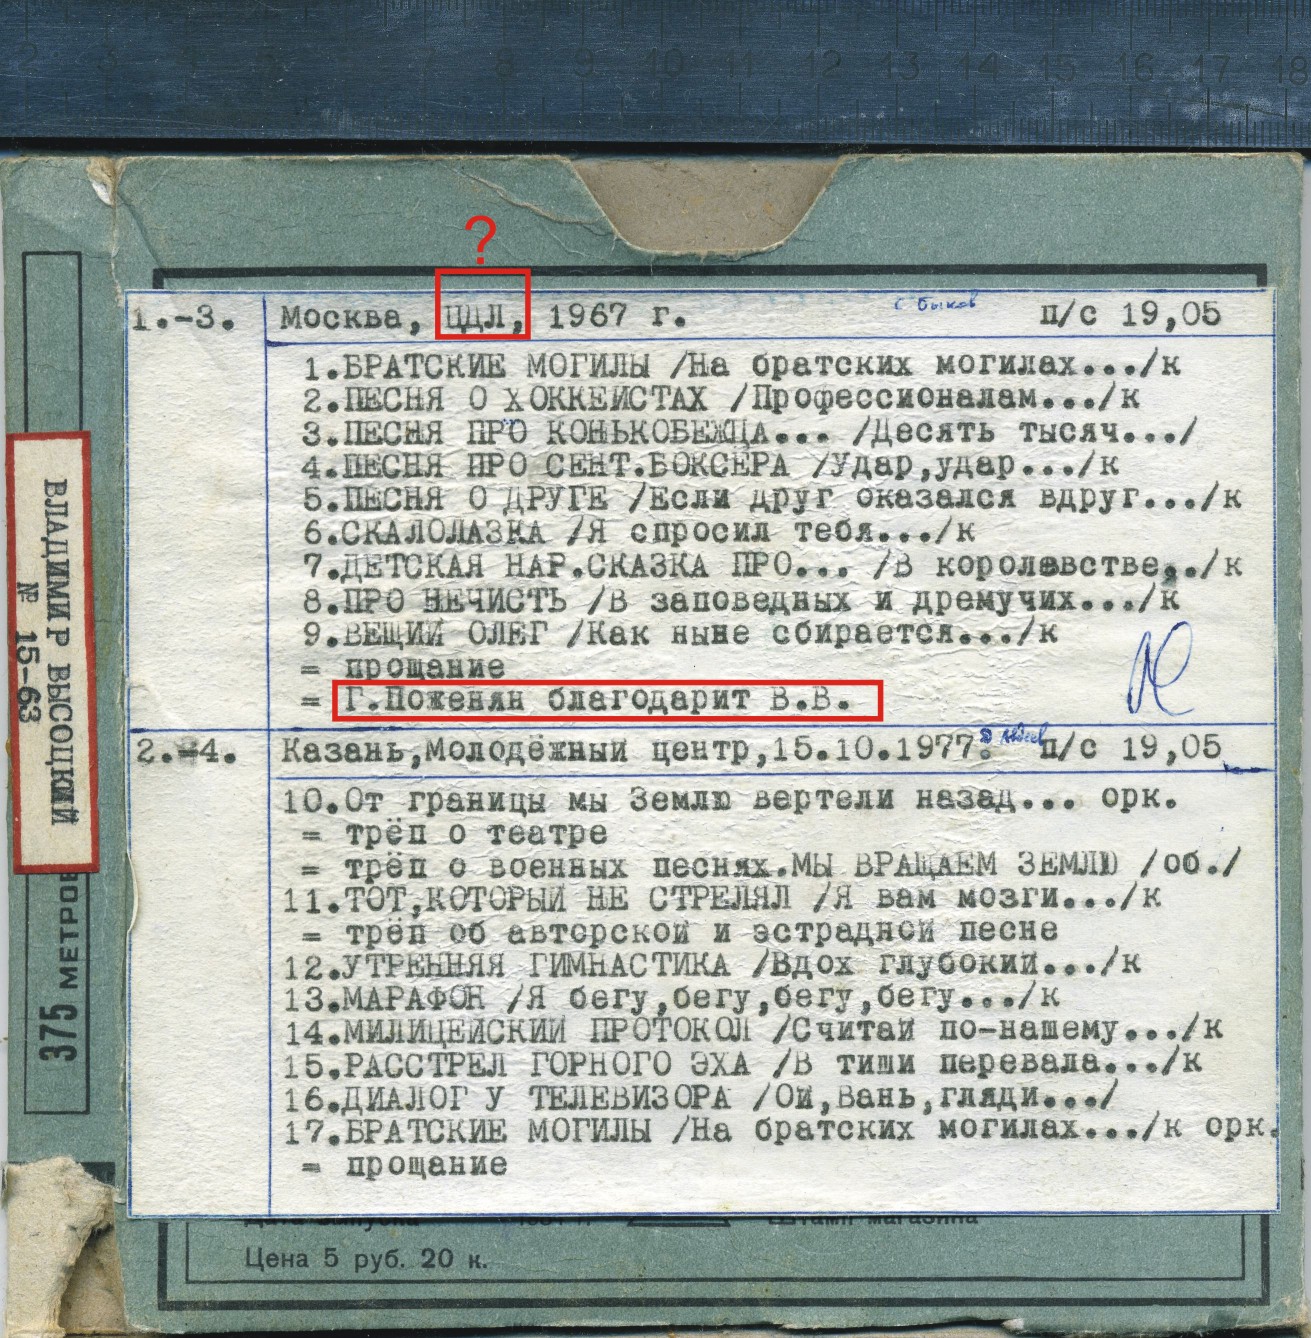 2 3 4 5 8 9 10 11 12 13 14 15 16 17 18
?
1.-3. Москва, ЦДЛ, 1967 г. С Быков п/с 19,05
1.БРАТСКИЕ МОГИЛЫ /На братских могилах.../к
2.ПЕСНЯ О ХОККЕИСТАХ /Профессионалам.../к
3.ПЕСНЯ ПРО КОНЬКОБЕЖЦА... /Десять тысяч.../
4.ПЕСНЯ ПРО СЕНТ.БОКСЁРА /Удар,удар.../к
5.ПЕСНЯ О ДРУГЕ /Если друг оказался вдруг.../к
6.СКАЛОЛАЗКА /Я спросил тебя.../к
7.ДЕТСКАЯ НАР.СКАЗКА ПРО... /В королевстве,../к
8.ПРО НЕЧИСТЬ /В заповедных и дремучих.../к
9.ВЕЩИЙ ОЛЕГ /Как ныне сбирается.../к
= прощание
= Г.Поженян благодарит В.В.
2.-4. Казань,Молодёжный центр,15.10.1977. п/с 19,05
10.От границы мы Землю вертели назад... орк.
= трёп о театре
= трёп о военных песнях.МЫ ВРАЩАЕМ ЗЕМЛЮ /об./
11.ТОТ,КОТОРЫЙ НЕ СТРЕЛЯЛ /Я вам мозги.../к
= трёп об авторской и эстрадной песне
12.УТРЕННЯЯ ГИМНАСТИКА /Вдох глубокий.../к
13.МАРАФОН /Я бегу,бегу,бегу,бегу.../к
14.МИЛИЦЕЙСКИЙ ПРОТОКОЛ /Считай по-нашему.../к
15.РАССТРЕЛ ГОРНОГО ЭХА /В тиши перевала.../к
16.ДИАЛОГ У ТЕЛЕВИЗОРА /Ой,Вань,гляди.../
17.БРАТСКИЕ МОГИЛЫ /На братских могилах.../к орк.
= прощание
Дата выпуска Штамп магазина
Цена 5 руб. 20 к.
ВЛАДИМИР ВЫСОЦКИЙ
№ 15-63
375 МЕТРОВ